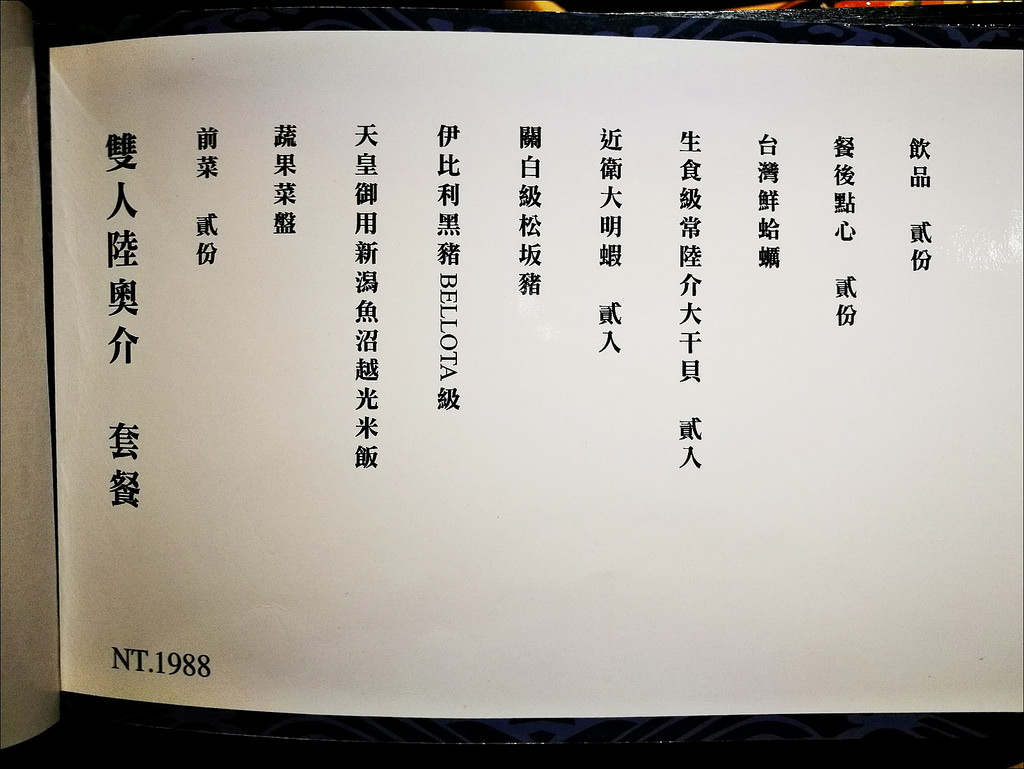 雙人陸奧介　套餐
NT.1988
前菜　貳份
蔬果菜盤
天皇御用新潟魚沼越光米飯
伊比利黑豬BELLOTA級
關白級松坂豬
近衛大明蝦　貳入
生食級常陸介大干貝　貳入
台灣鮮蛤蠣
餐後點心　貳份
飲品　貳份